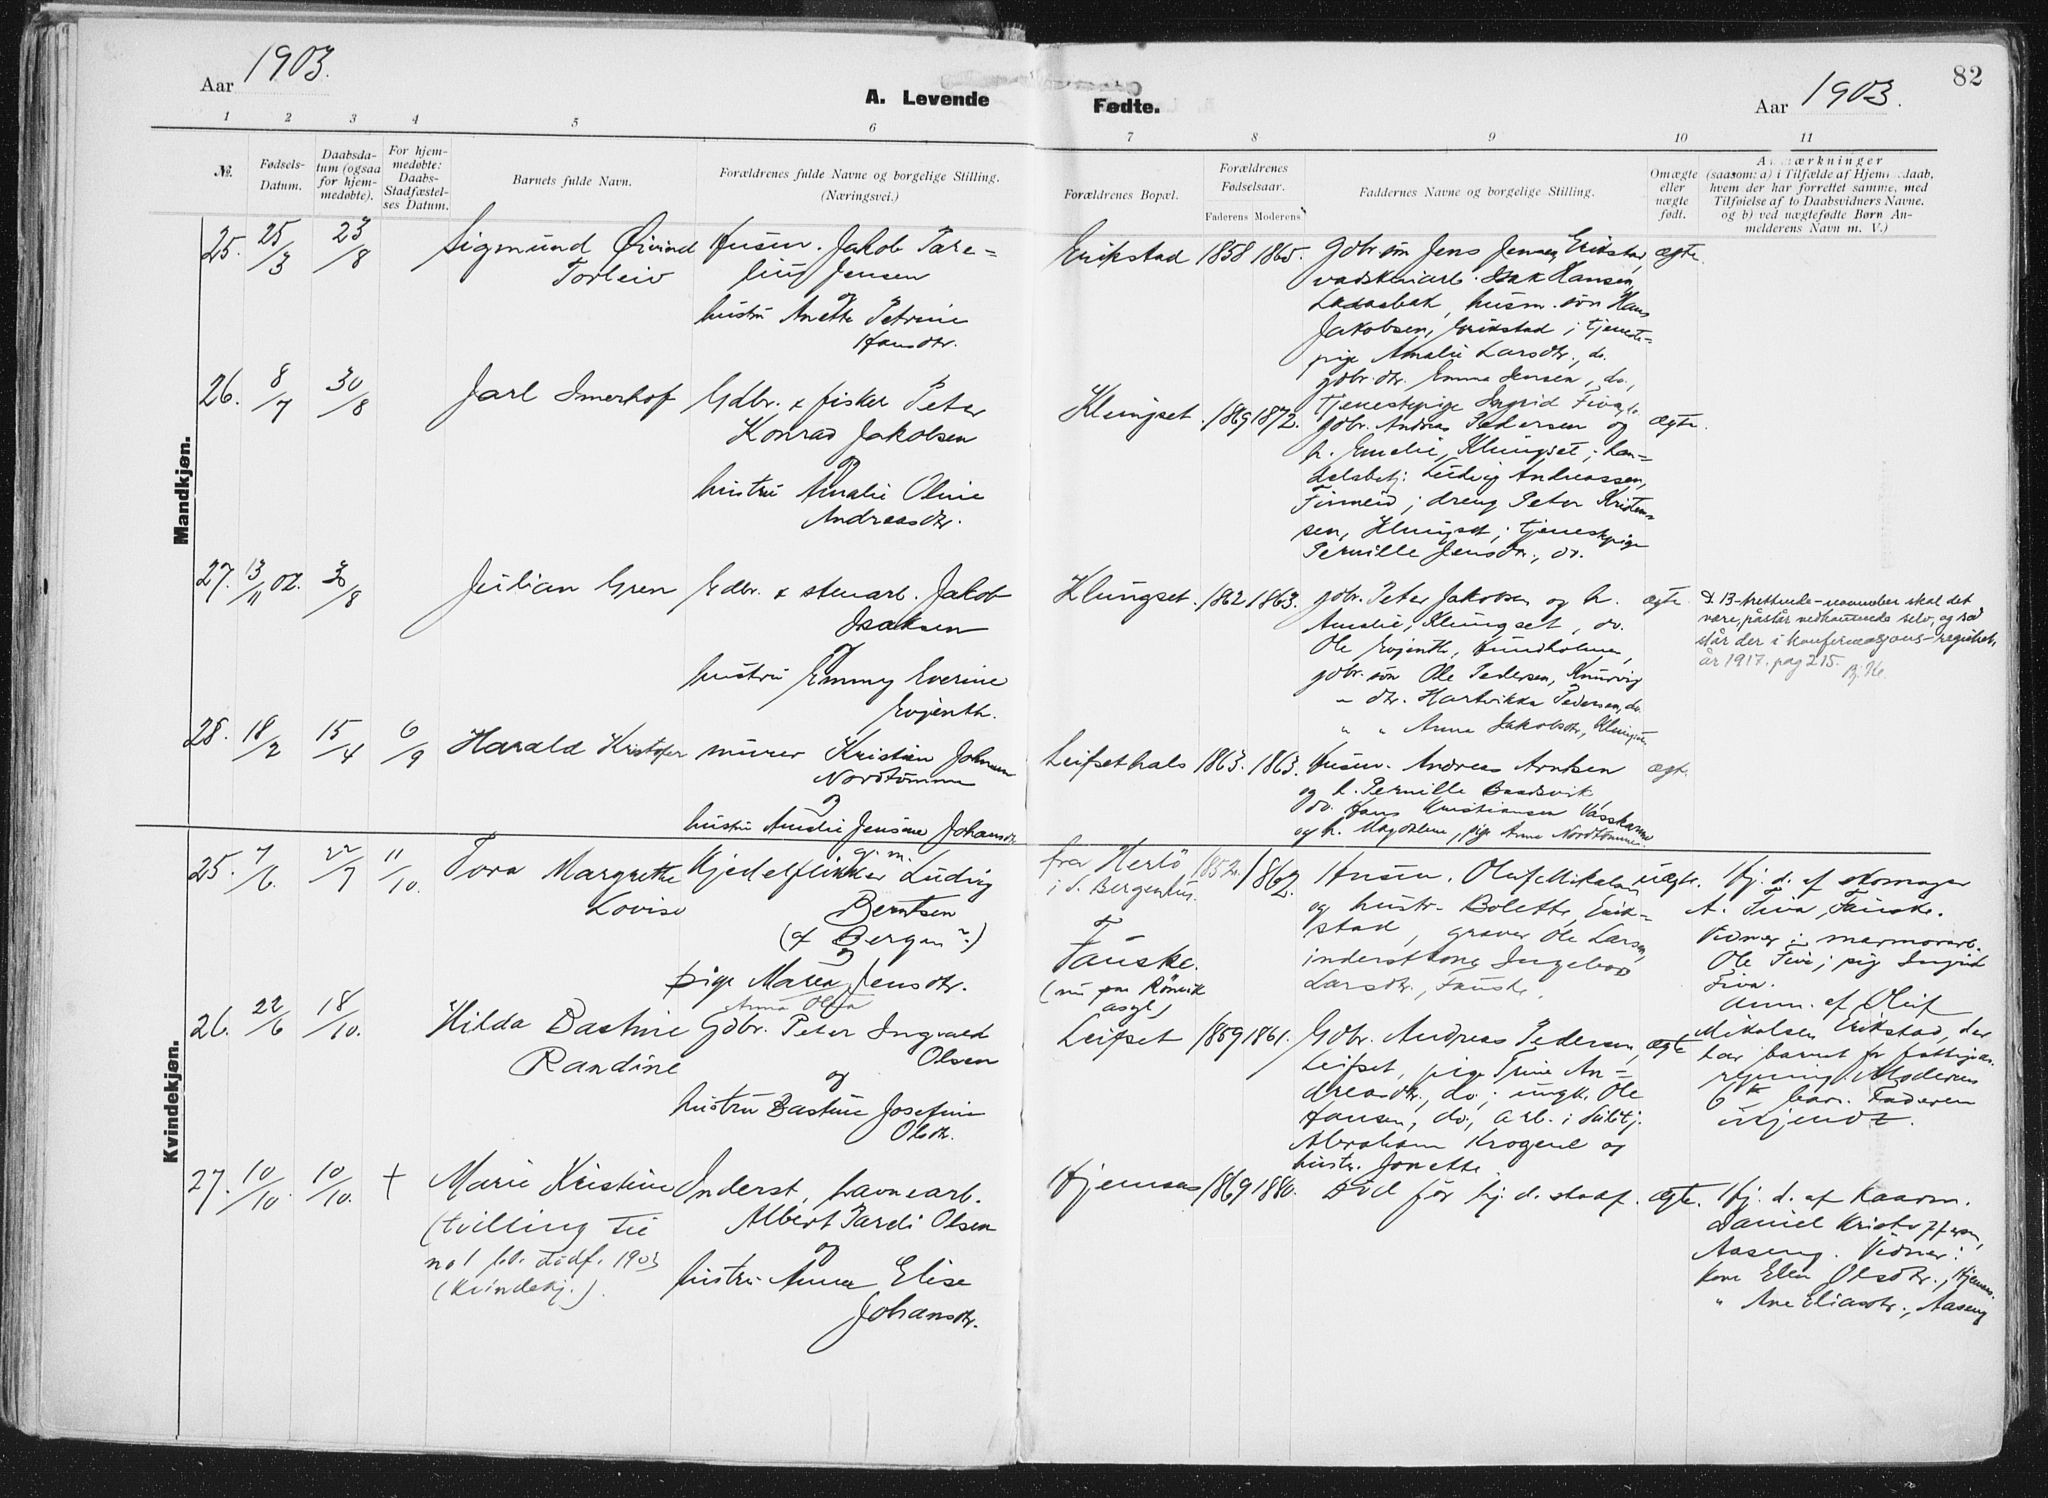 Aar 1903.
A. Levende
Fødte.
Aar 1903.
82
1 2 3 4 5 6 7 8 9 10 11
№.
Fødsels-
Datum.
Daabsda-
tum (ogsaa
for hjem-
medøbte).
For hjem-
medøbte:
Daabs-
Stadfæstel-
ses Datum.
Barnets fulde Navn.
Forældrenes fulde Navne og borgelige Stilling.
(Næringsvei.)
Forældrenes Bopæl.
Forældrenes
Fødselsaar.
Faderens Moderens
Faddernes Navne og borgelige Stilling.
Omægte
eller
nægte
født.
Anmærkninger
(saasom: a) i Tilfælde af Hjemmedaab,
hvem der har forrettet samme, med
Tilføielse af to Daabsvidners Navne.
og b) ved nægtefødte Børn An-
melderens Navn m. V.)
Mandkjøn.
25. 25/3 23/8
Sigmund Øivind
Torleiv
Husm. Jakob Pare-
lius Jensen
og
hustru Anette Petrine
Hansdtr.
Erikstad 1858 1865.
Gdbr. søn Jens Jensen, Erikstad,
vadskeriarb. Isak Hansen,
husm. søn Hans
Jakobsen, Erikstad; tjeneste-
pige Amalie Larsdtr., do.
gdbr. dtr. Emma Jensen, do.,
tjenestepige Ingrid Fiva, do.
ægte.
26. 8/7 30/8
Jarl Imerhof
Gdbr. & fisker Peter
Konrad Jakobsen
og
hustru Amalie Oline
Andreasdtr.
Klungset. 1869 1872.
gdbr. Andreas Pedersen og
h. Emelie, Klungset; han-
delsbetj. Ludvig Andreassen,
Finneid; dreng Peter Kristen-
sen, Klungset; tjenestepige
Pernille Jensdtr., do.
ægte.
27. 13/11 02. 30/8
Julian Gren
Gdbr. & stenarb. Jakob
Isaksen
og
hustru Emmy Everine
Evjenth.
Klungset. 1862 1863.
gdbr. Peter Jakobsen og h.
Amalie, Klungset, do.
Ole Evjenth, Hundholmen,
gdbr. søn Ole Pedersen,
" dtr. Hartvikka Pedersen, do.
" " Anna Jakobsdtr., Klungset
ægte.
D. 13-trettende-november skal det
være, påstår vedkommende selv, og så
står der i konfirmasjons-registret,
år 1917. pag 215.
28. 18/2 15/4 6/9
Harald Kristofer
murer Kristian Johnsen
Nordtømme
og
hustru Amalie Jensine Johansdtr.
Leifsethals 1863. 1863.
Husm. Andreas Arntsen
og h. Pernille Baadsvik
do. Hans Kristiansen Vasskarmo
og h. Magdalene, pige Anna Nordtømme
ægte.
Kvindekjøn.
25. 7/6. 22/7 11/10.
Tora Margrethe
Lovise
gi. m.
Kjedelflikker Ludvig
Berntsen
(af Bergen?)
og
pige Maria Jensdtr.
Anna Olga
fra Herlö
i S. Bergenhus.
og
Fauske.
(nu paa Rønvik
asyl)
1852. 1862.
Husm. Oluf Mikalsen
og hustr. Bolette, Erik-
stad, graver Ole Larsen,
inderstkone Ingebor
Larsdtr., Fauske.
uægte.
Hj. d. af skomager
A. Fiva, Fauske.
Vidner: marmorarb.
Ole Fiva; pig Ingrid
Fiva.
Anm. af Oluf
Mikalsen Erikstad, der
har barnet for fattigsty-
relsen. Moderens
6te barn. Faderen
ukjendt.
26. 22/6 18/10.
Hilda Bastine
Randine
Gdbr. Peter Ingvald
Olsen
og
hustru Bastine Josefine
Olsdtr.
Leifset 1859 1861.
Gdbr. Andreas Pedersen,
Leifset, pige Trine An-
dreasdtr., do.; ungk. Ole
Hansen, do., arb. i Sulitj.
Abraham Krogene og
hustr. Jonette
ægte
27. 10/10. 10/10. †
Marie Kristine
(tvilling til
no 1 bl. dødf. 1903
(kvindekj.).
Inderst, havnearb.
Albert Pardi Olsen
og
hustru Anna Elise
Johansdtr.
Hjemsas 1869 1880.
Död før hj. d. stadf.
ægte.
Hj. d. af Kaarm.
Daniel Kristoffersen,
Aaseng. Vidner:
kone Elen Olsdtr., Hjemsas.
" Ane Eliasdtr., Aaseng